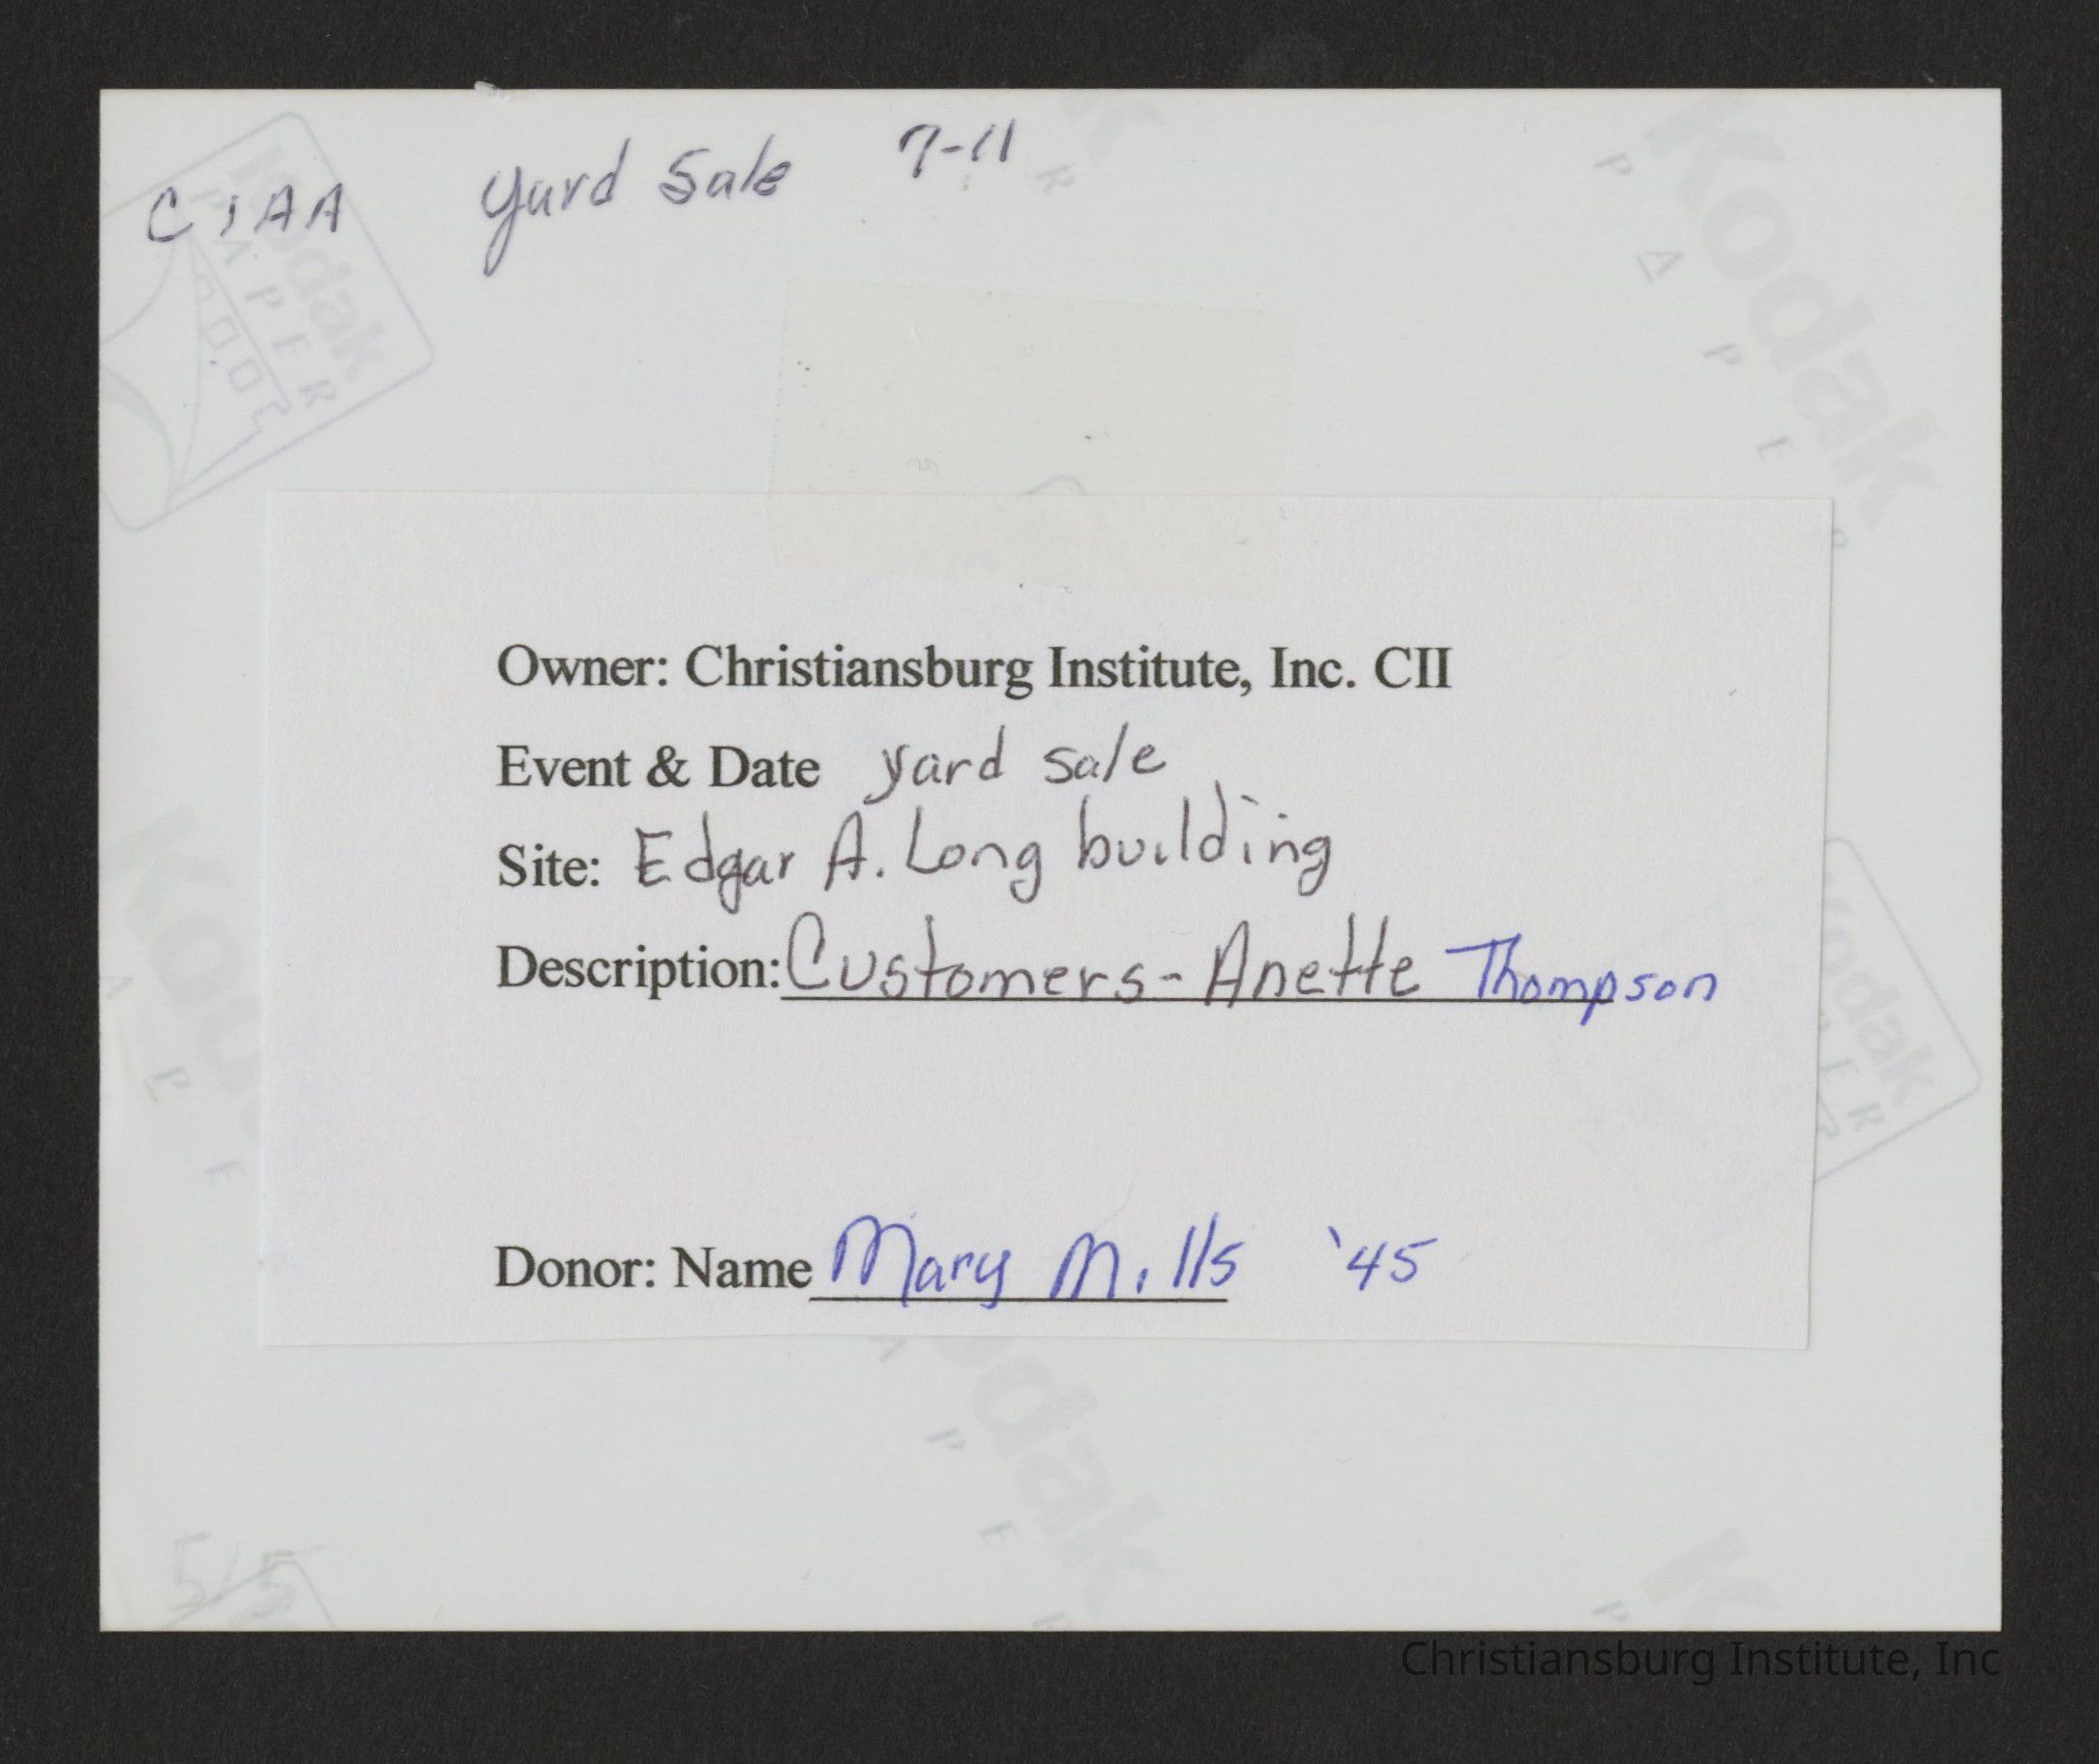 CIAA yard Sale 7-11
Owner: Christiansburg Institute, Inc. CII
Event & Date yard sale
Site: Edgar A. Long building
Description: Customers- Anette Thompson
Donor: Name Mary Mills '45
5/5
Christiansburg Institute, Inc
Kodak
PAPER
Kodak
Kodak
PAPER